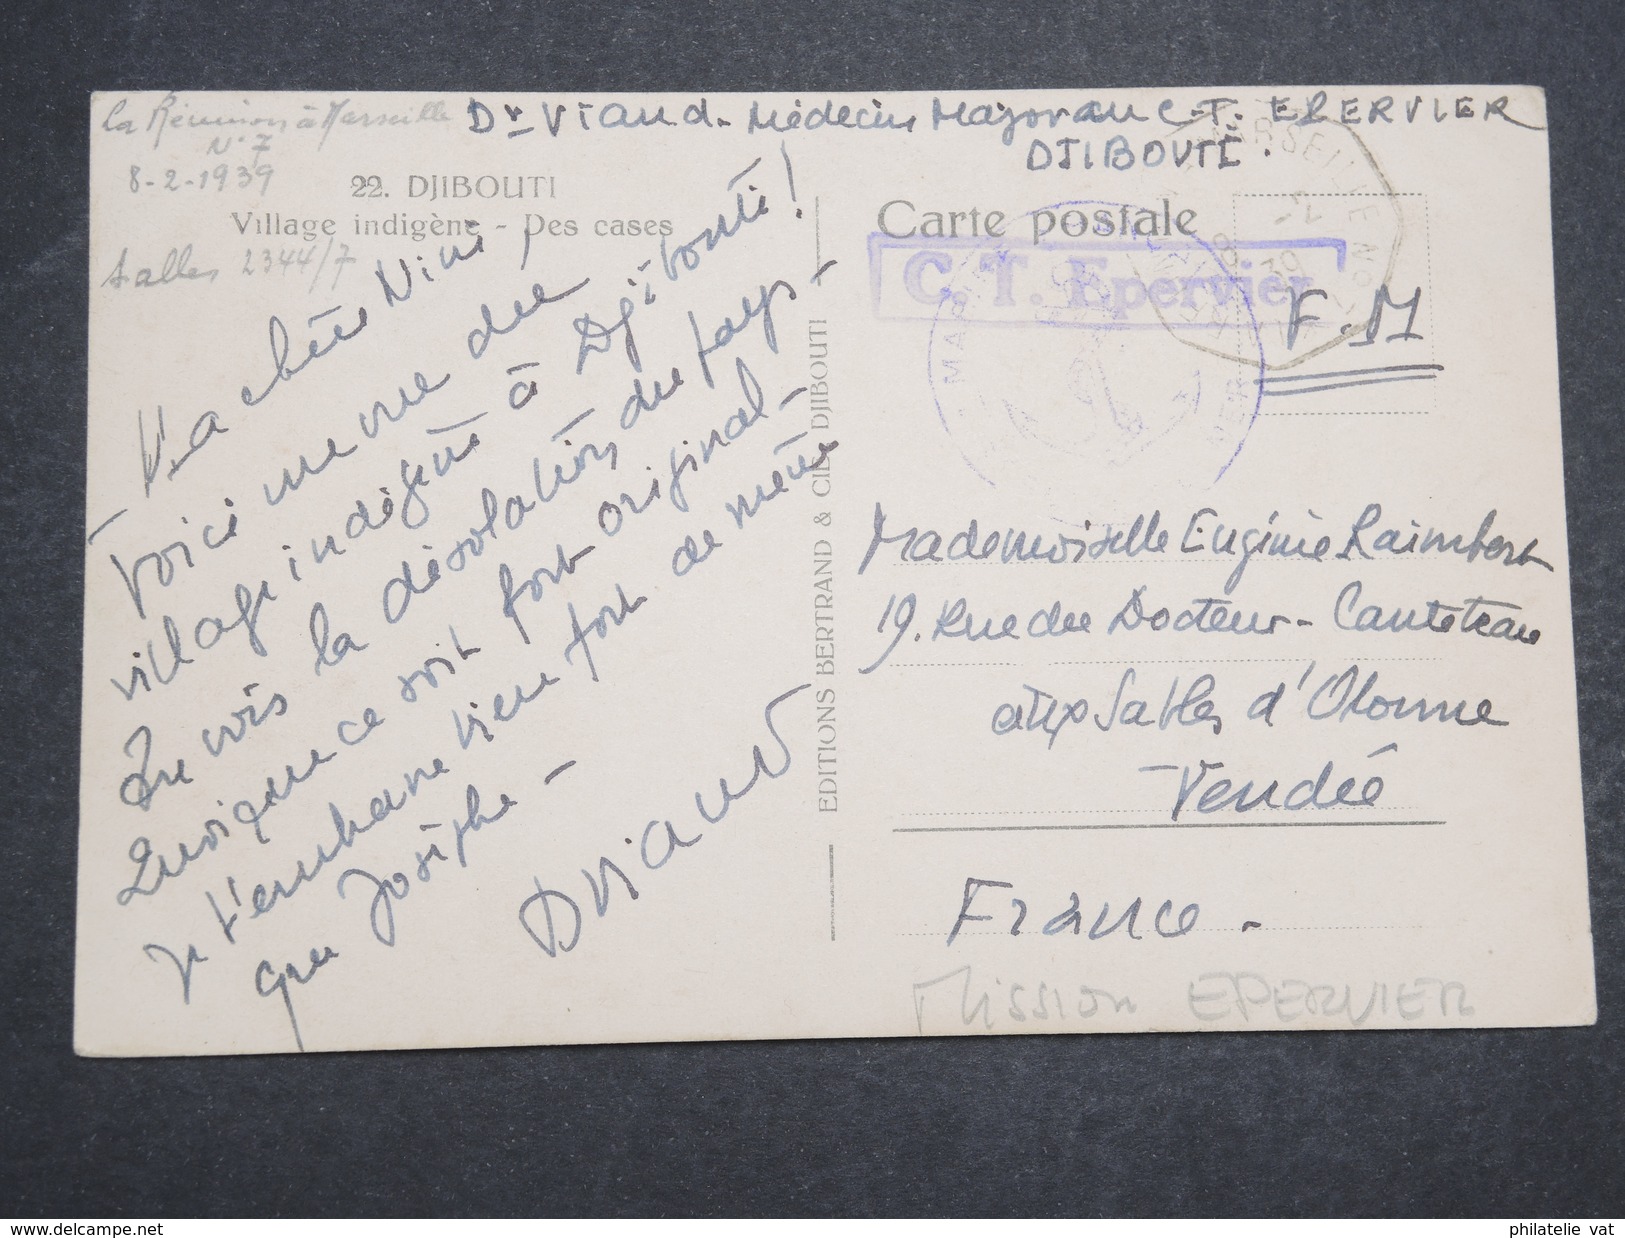 La Réunion à Marseille
N° 7
8-2-1939
Salles 2344/7
Dr Viaud - Médecin Major au C.T. EPERVIER
DJIBOUTI.
22. DJIBOUTI
Village indigène - Des cases
Ma chère Nini,
Voici une vue du
village indigène à Djibouti!
Tu vois la désolation du pays -
quoique ce soit fort original -
Je t'embrasse bien fort de même
que Josèphe -
DViaud
EDITIONS BERTRAND & CIE DJIBOUTI
Carte postale
C. T. Epervier
F.M
MARSEILLE N° 7
8
39
Mademoiselle Eugénie Raimbert
19. Rue du Docteur - Canteteau
aux Sables d'Olonne
Vendée
France -
Mission EPERVIER
www.delcampe.net
philatelie vat